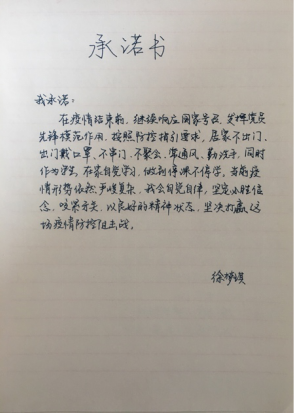 承诺书
我承诺:
在疫情结束前,继续响应国家号召,发挥党员
先锋模范作用,按照防控指引要求,居家不出门,
出门戴口罩,不串门,不聚会,常通风,勤洗手,同时
作为学生,在家自觉学习,做到停课不停学,当前疫
情形势依然严峻复杂,我会自觉自律,坚定必胜信
念,咬紧牙关,以良好的精神状态,坚决打赢这
场疫情防控阻击战。
徐梦